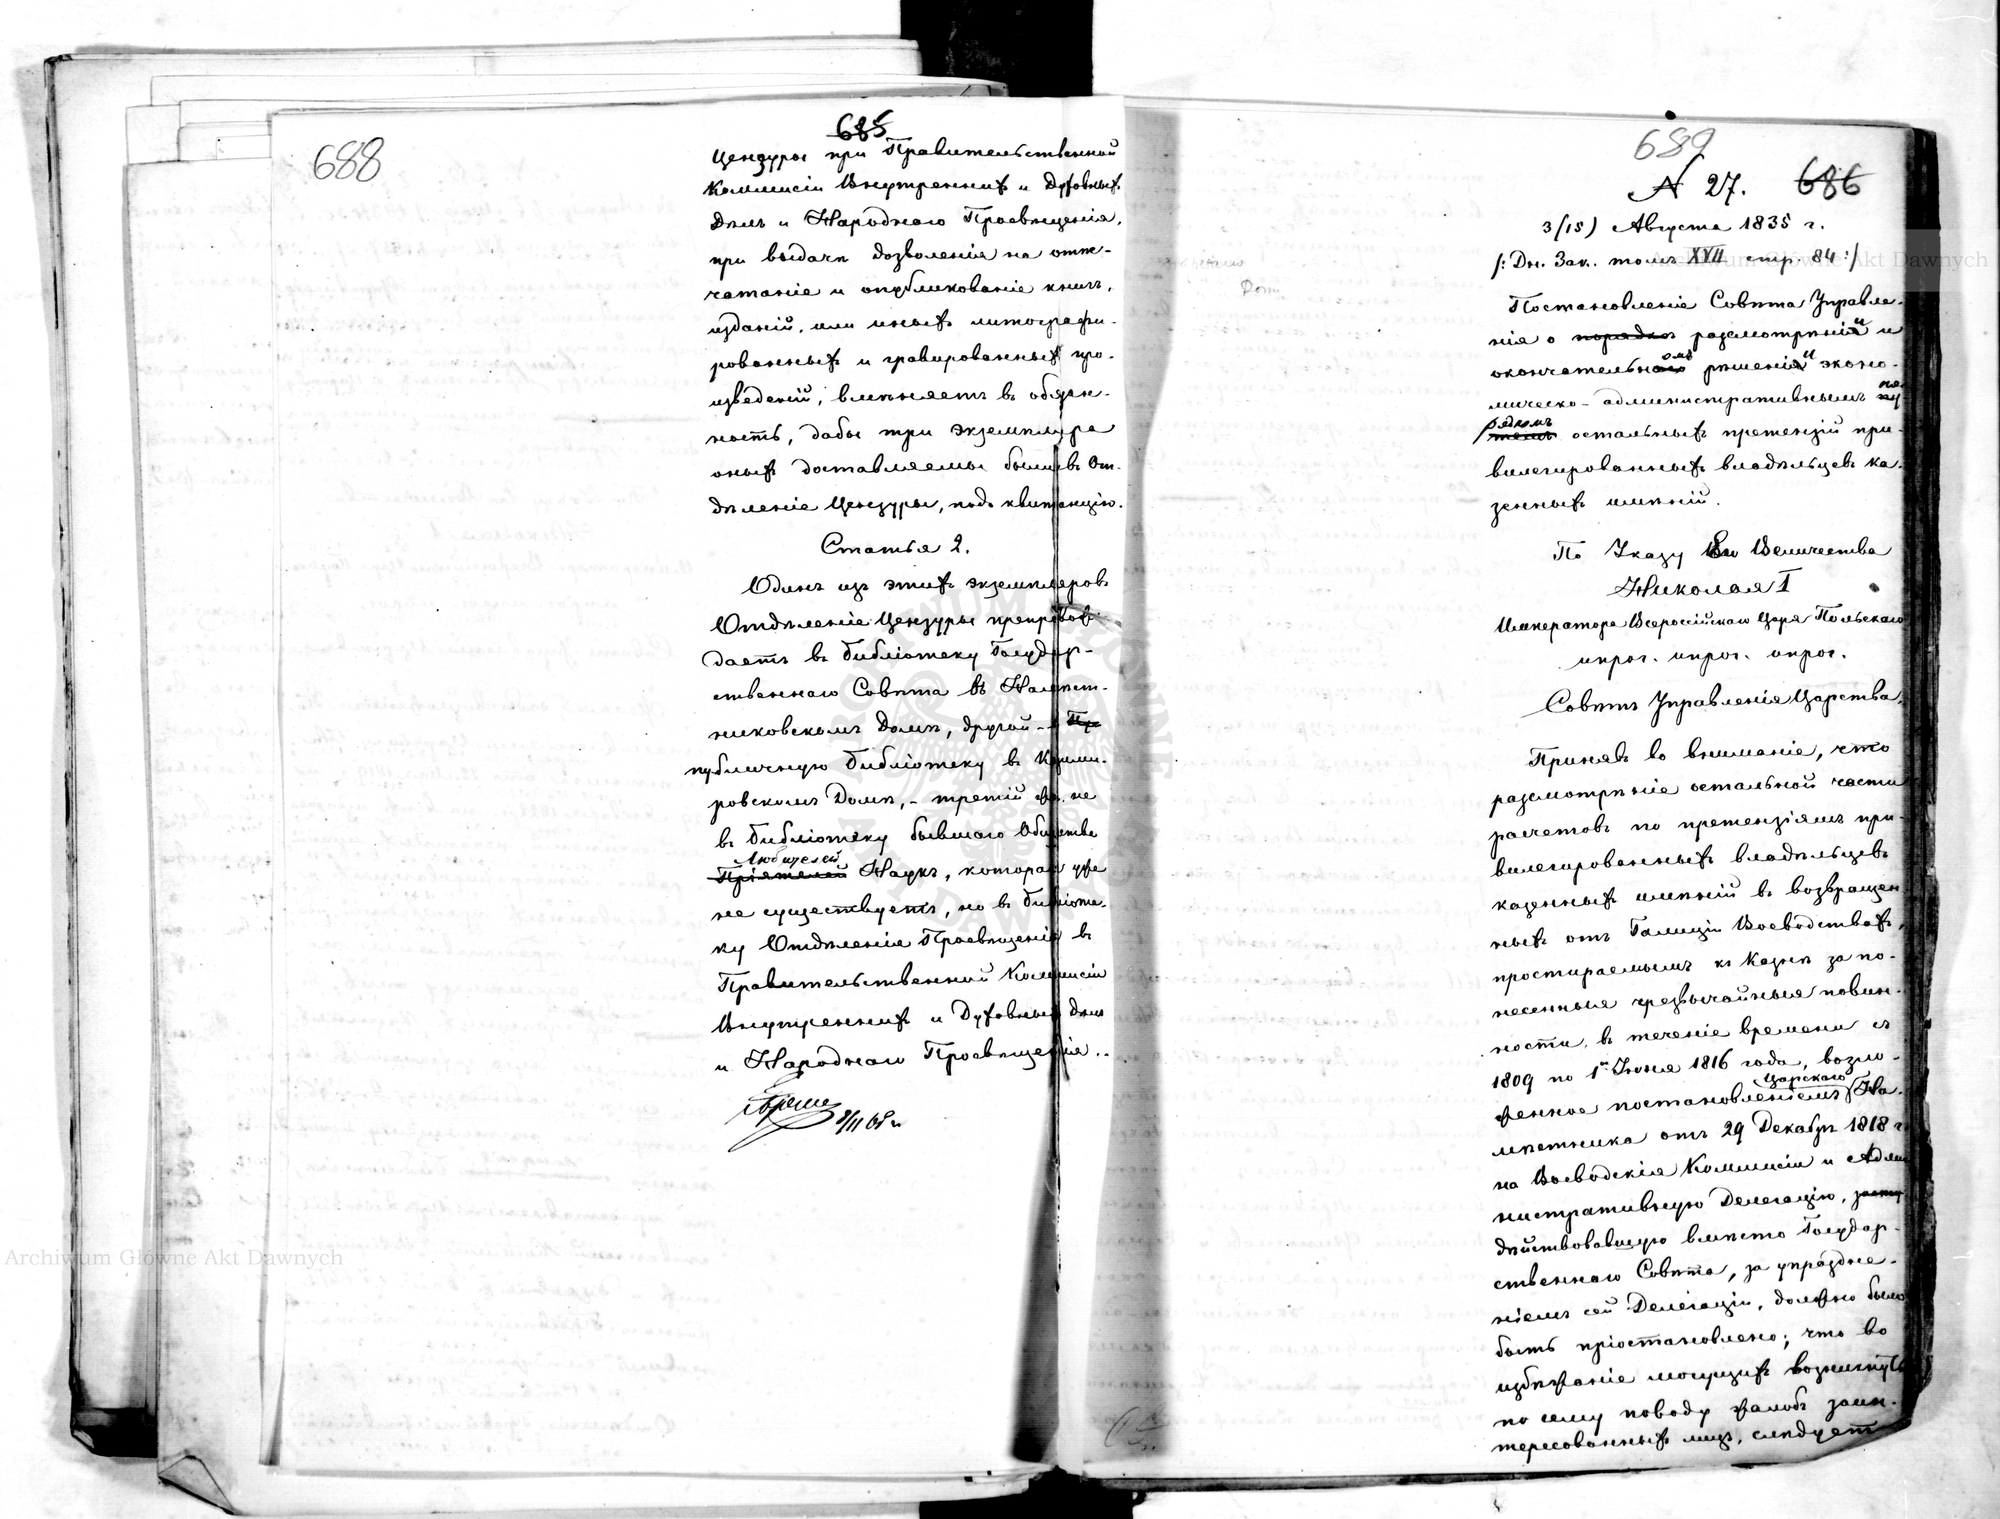 688
685
Цензуры при Правительственной
Коммисіи Внутреннихъ и Духовныхъ
Дѣлъ и Народнаго Просвѣщенія,
при выдачѣ дозволенія на отпе-
чатаніе и опубликованіе книгъ,
изданій, или иныхъ литографи-
рованныхъ и гравированныхъ про-
изведеній, вмѣняетъ въ обязан-
ность, дабы три экземпляра
оныхъ доставляемы были въ От-
дѣленіе Цензуры, подъ квитанцію.
Статья 2.
Одинъ изъ этихъ экземпляровъ
Отдѣленіе Цензуры препровож-
даетъ въ библіотеку Государ-
ственнаго Совѣта въ Намѣст-
никовскомъ Домѣ, другой - в Пу
публичную библіотеку въ Казими-
ровскомъ Домѣ, - третій же не
въ библіотеку бывшаго Общества
Любителей
Пріятелей Наукъ, которая уже
не существуетъ, но въ библіоте-
ку Отдѣленія Просвѣщенія въ
Правительственной Коммисіи
Внутреннихъ и Духовныхъ Дѣлъ
и Народнаго Просвѣщенія.
689
N 27. 686
3/15) Августа 1835 г.
/: Дн. Зак. томъ XVII стр. 84 :/
Постановленіе Совѣта Управле-
нія о порядкѣ разсмотрѣніи и
окончательномъ рѣшеніи эконо-
мическо-административнымъ по-
рядкомъ
остальныхъ претензій при-
вилегированныхъ владѣльцевъ ка-
зенныхъ имѣній.
По Указу Его Величества
Николая I
Императора Всероссійскаго Царя Польскаго
и проч. и проч. и проч.
Совѣтъ Управленія Царства,
Принявъ во вниманіе, что
разсмотрѣніе остальной части
расчетовъ по претензіямъ при-
вилегированныхъ владѣльцевъ
казенныхъ имѣній въ возвращен-
ныхъ отъ Галиціи Воеводствахъ,
простираемымъ къ Казнѣ за по-
несенныя чрезвычайныя повин-
ности, въ теченіе времени съ
1809 по 1е Іюня 1816 года, возло-
Царскаго
женное постановленіемъ На-
мѣстника отъ 29 Декабря 1818 г.
на Воеводскія Коммисіи и Адми-
нистративную Делегацію,
дѣйствовавшую вмѣсто Государ-
ственнаго Совѣта, за упраздне-
ніемъ сей Делегаціи, должно было
быть пріостановлено; что во
избѣжаніе могущихъ возникнуть
по сему поводу жалобъ заин-
тересованныхъ лицъ, слѣдуетъ
Archiwum Główne Akt Dawnych